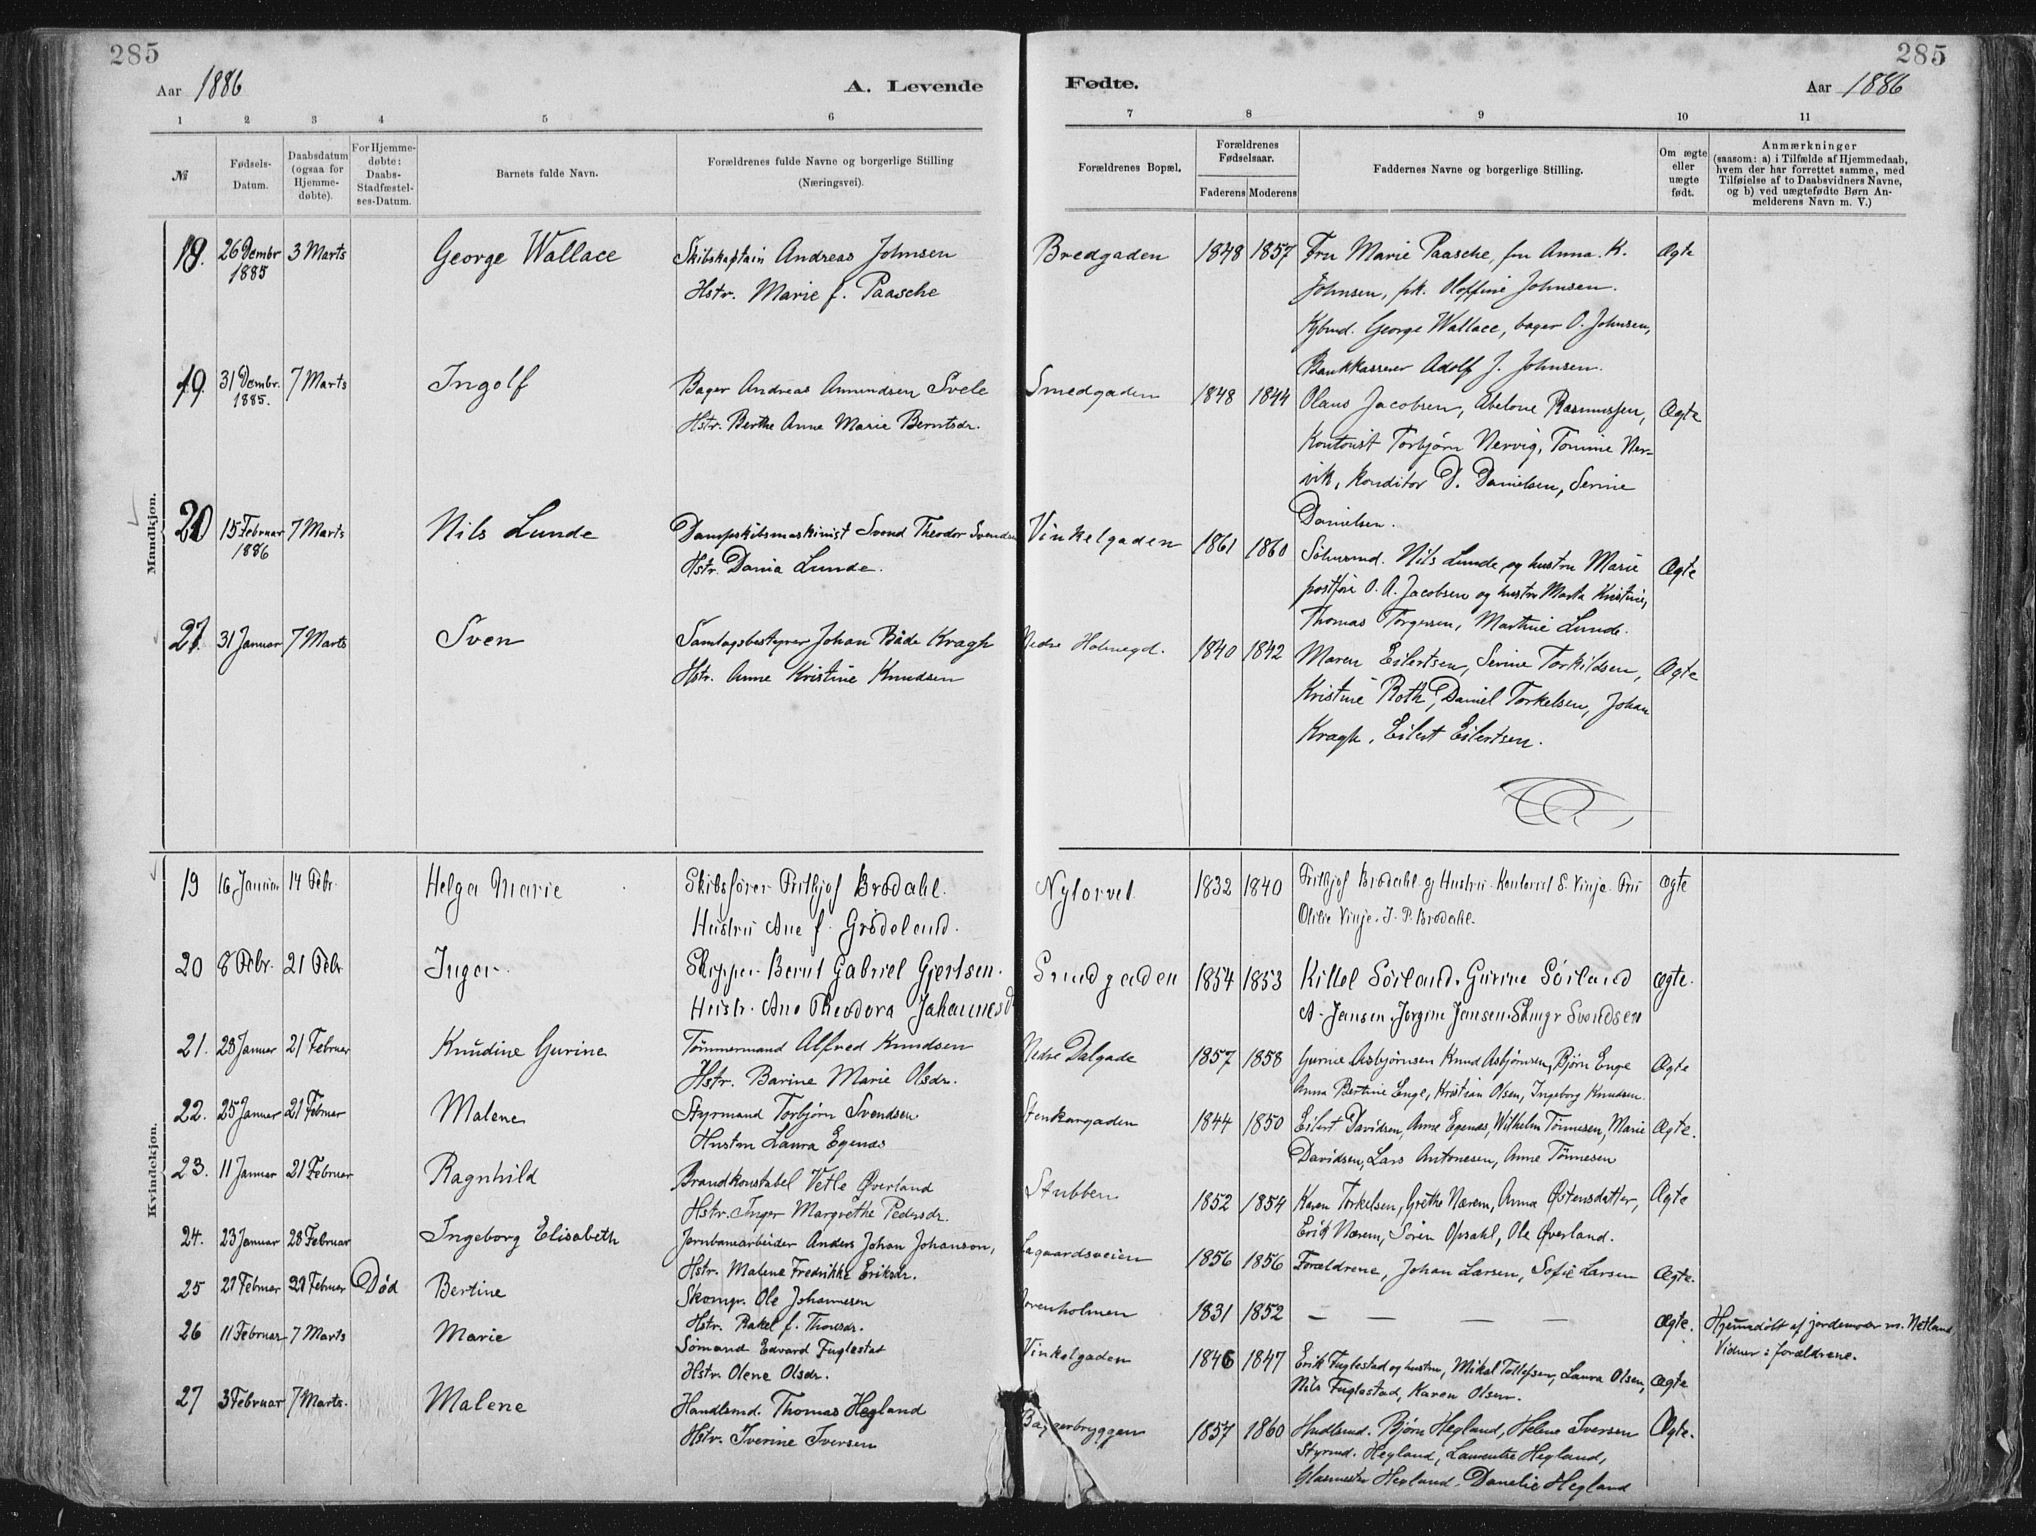 285
285
Aar 1886
A. Levende
Fødte.
Aar 1886
1 2 3 4 5 6 7 8 9 10 11
№
Fødsels-
Datum.
Daabsdatum
(ogsaa for
Hjemme-
døbte).
For Hjemme-
døbte:
Daabs-
Stadfæstel-
ses-Datum.
Barnets fulde Navn.
Forældrenes fulde Navne og borgerlige Stilling
(Næringsvei).
Forældrenes Bopæl.
Forældrenes
Fødselsaar.
Faderens Moderens
Faddernes Navne og borgerlige Stilling.
Om ægte
eller
uægte
født.
Anmærkninger
(saasom: a) i Tilfælde af Hjemmedaab,
hvem der har forrettet samme, med
Tilføielse af to Daabsvidners Navne,
og b) ved uægtefødte Børn An-
melderens Navn m. V.)
Mandkjøn.
18. 26 Dembr 3 Marts George Wallace Skibskaptain Andreas Johnsen Bredgaden 1848 1857 Fru Marie Paasche, fru Anna. K. Ægte
1885 Hstr. Marie f. Paasche Johnsen, frk. Oloffine Johnsen.
Kjbmd. George Wallace, bager O. Johnsen,
Bankkasserer Adolf J. Johnsen.
19. 31 Dembr. 7 Marts Ingolf Bager Andreas Amundsen Svele Smedgaden 1848 1844 Olaus Jacobsen, Abelone Rasmussen, Ægte
1885. Hstr. Berthe Anne Marie Berntsdr. Kontorist Torbjørn Nervig, Tomine Ner-
vik, Konditor D. Danielsen, Serine
Danielsen.
20 15 Februar 7 Marts Nils Lunde Dampskibsmaskinist Svend Theodor Svendsen Vinkelgaden 1861 1860 Nils Lunde og hustru Marie Ægte
1886 Hstr. Dania Lunde. O. A. Jacobsen og hustru Marta Kristine,
Thomas Torgersen, Martine Lunde.
21. 31 Januar 7 Marts Sven Samlagsbestyrer Johan Både Kragh Nedre Holmegd. 1840 1842 Maren Eilertsen, Serine Torkildsen, Ægte
Hstr. Anne Kristine Knudsen Kristine Roth, Daniel Torkelsen, Johan
Kragh, Eilert Eilertsen.
Kvindekjøn.
19 16 Januar 14 Febr. Helga Marie Skibsfører Fritkjof Brodahl. Nytorvet 1832 1840 Fritkjof Brodahl og Hustru. Kontorist S. Vinje. Fru Ægte
Hustru Ane f. Grødeland. Olilie Vinje. J. P. Brodahl.
20 8 Febr. 21 Febr Inger Skipper Bernt Gabriel Gjertsen. Smedgaden 1854 1853 Kittel Sörland. Gurine Sörland Ægte.
Hustr. Ane Theodora Johannesd A. Jansen. Jorgine Jansen. Svendsen
21. 28 Januar 21 Februar Knudine Gurine Tømmermand Alfred Knudsen Nedre Dalgade 1857 1858 Gurine Asbjørnsen Knud Asbjørnsen, Bjørn Enge Ægte
Hstr. Barine Marie Olsdr. Anna Bertine Enge, Kristian Olsen, Ingeborg Knudsen
22. 25 Januar 21 Februar Malene Styrmand Torbjørn Svendsen Stenkargaden 1844 1850 Eilert Davidsen, Anne Egenæs, Wilhelm Tønnesen, Marie Ægte.
Hustru Laura Egenæs Davidsen, Lars Antonesen, Anne Tønnesen
23. 11 Januar 21 Februar Ragnhild Brandkonstabel Vetle Øverland Stubben 1852 1854 Karen Torkelsen, Grethe Nærem, Anna Østensdatter, Ægte
Hstr. Inger Margrethe Pedersdr. Erik Nærem, Sören Opsahl, Ole Øverland.
24. 23 Januar 28 Februar Ingeborg Elisabeth Jernbanearbeider Anders Johan Johanson, Lagaardsveien 1856 1856 Forældrene, Johan Larsen, Sofie Larsen Ægte.
Hstr. Malene Fredrikke Eriksdr.
25 27 Februar Februar Død Bertine Skomgr. Ole Johannesen 1831 1852 — — — — Ægte. Hjemmdöbt af jordemoder M. Netland
Hstr. Rakel f. Thorsdr. Vidner: forældrene.
26 11 Februar 7 Marts Marie Sømand Edvard Fuglestad Vinkelgaden 1846 1847 Erik Fuglestad og hustru, Mikal Tollefsen, Laura Olsen, Ægte
Hstr. Olene Olsdr. Nils Fuglestad, Karen Olsen.
27 3 Februar 7 Marts. Malene Handlsmd. Thomas Hegland 1857 1860 Hndlsmd. Bjørn Hegland, Helene Iversen Ægte.
Hstr. Iverine Iversen Styrmd. Hegland, Laurentse Hegland,
Glasmester Hegland. Danelie Hegland